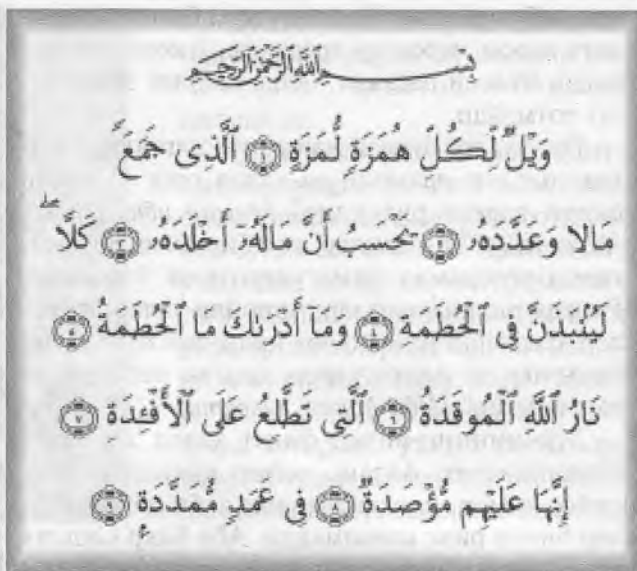 بِسْمِ اللَّهِ الرَّحْمَٰنِ الرَّحِيمِ
وَيْلٌ لِّكُلِّ هُمَزَةٍ لُّمَزَةٍ ١ ٱلَّذِى جَمَعَ
مَالًا وَعَدَّدَهُۥ ٢ يَحْسَبُ أَنَّ مَالَهُۥٓ أَخْلَدَهُۥ ٣ كَلَّاۖ
لَيُنۢبَذَنَّ فِى ٱلْحُطَمَةِ ٤ وَمَآ أَدْرَىٰكَ مَا ٱلْحُطَمَةُ ٥
نَارُ ٱللَّهِ ٱلْمُوقَدَةُ ٦ ٱلَّتِى تَطَّلِعُ عَلَى ٱلْأَفْـِٔدَةِ ٧
إِنَّهَا عَلَيْهِم مُّؤْصَدَةٌ ٨ فِى عَمَدٍ مُّمَدَّدَةٍۭ ٩